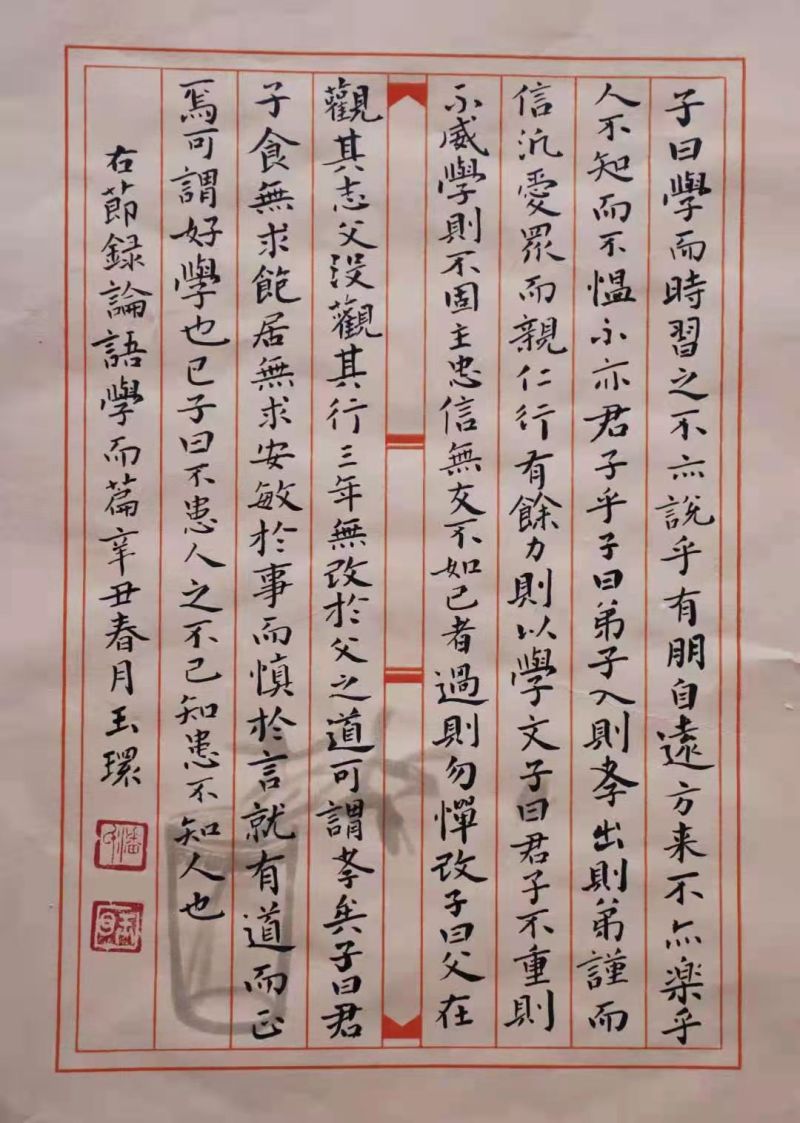 子曰學而時習之不亦說乎有朋自遠方来不亦楽乎
人不知而不愠不亦君子乎子曰弟子入則孝出則弟謹而
信汎愛眾而親仁行有餘力則以學文子曰君子不重則
不威學則不固主忠信無友不如己者過則勿憚改子曰父在
觀其志父沒觀其行三年無改於父之道可謂孝矣子曰君
子食無求飽居無求安敏於事而慎於言就有道而正
焉可謂好學也已子曰不患人之不己知患不知人也
右節録論語學而篇辛丑春月玉環